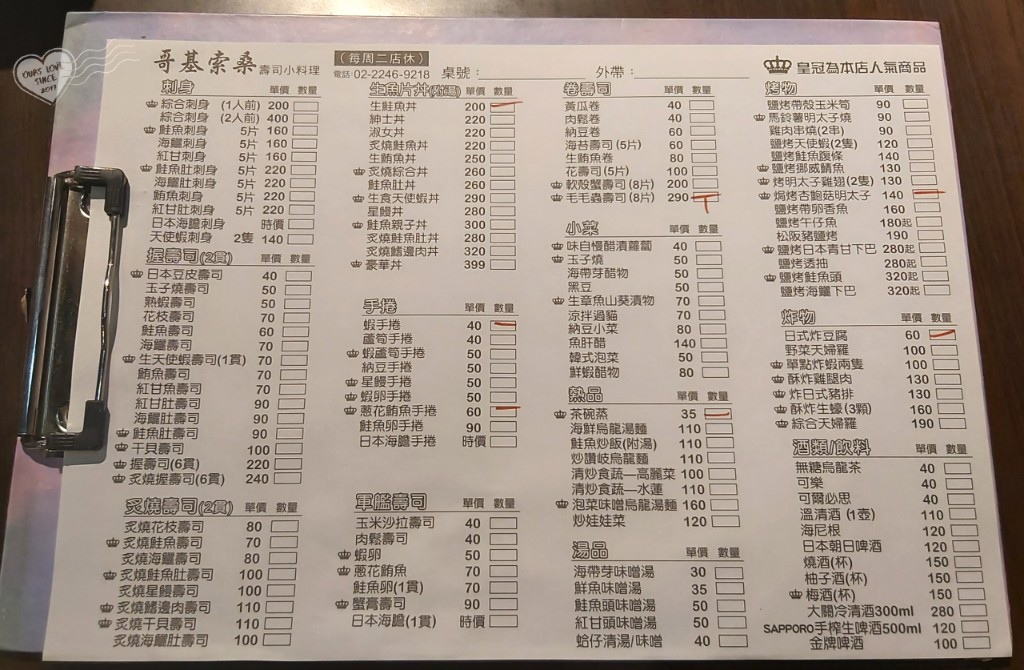 OURS LOVE
SINCE
2017
哥基索桑 壽司小料理
(每周二店休)
電話:02-2246-9218 桌號: 外帶:
皇冠為本店人氣商品
刺身 單價 數量
綜合刺身 (1人前) 200
綜合刺身 (2人前) 400
鮭魚刺身 5片 160
海鱺刺身 5片 160
紅甘刺身 5片 160
鮭魚肚刺身 5片 220
海鱺肚刺身 5片 220
鮪魚刺身 5片 220
紅甘肚刺身 5片 220
日本海膽刺身 時價
天使蝦刺身 2隻 140
握壽司(2貫) 單價 數量
日本豆皮壽司 40
玉子燒壽司 50
熟蝦壽司 50
花枝壽司 70
鮭魚壽司 60
海鱺壽司 70
生天使蝦壽司(1貫) 70
鮪魚壽司 70
紅甘魚壽司 70
紅甘肚壽司 90
海鱺肚壽司 90
鮭魚肚壽司 90
干貝壽司 100
握壽司(6貫) 220
炙燒握壽司(6貫) 240
炙燒壽司(2貫) 單價 數量
炙燒花枝壽司 80
炙燒鮭魚壽司 70
炙燒海鱺壽司 80
炙燒鮭魚肚壽司 100
炙燒星鰻壽司 100
炙燒鰭邊肉壽司 110
炙燒干貝壽司 110
炙燒海鱺肚壽司 100
生魚片丼 單價 數量
生鮭魚丼 200
紳士丼 220
淑女丼 220
炙燒鮭魚丼 220
生鮪魚丼 250
炙燒綜合丼 260
鮭魚肚丼 260
生食天使蝦丼 290
星鰻丼 280
鮭魚親子丼 300
炙燒鮭魚肚丼 280
炙燒鰭邊肉丼 320
豪華丼 399
手捲 單價 數量
蝦手捲 40
蘆筍手捲 40
蝦蘆筍手捲 50
納豆手捲 50
星鰻手捲 50
蝦卵手捲 50
蔥花鮪魚手捲 60
鮭魚卵手捲 90
日本海膽手捲 時價
軍艦壽司 單價 數量
玉米沙拉壽司 40
肉鬆壽司 40
蝦卵 50
蔥花鮪魚 70
鮭魚卵(1貫) 70
蟹膏壽司 90
日本海膽(1貫) 時價
卷壽司 單價 數量
黃瓜卷 40
肉鬆卷 40
納豆卷 60
海苔壽司 (5片) 60
生鮪魚卷 80
花壽司 (5片) 100
軟殼蟹壽司 (8片) 200
毛毛蟲壽司 (8片) 290
小菜 單價 數量
味自慢醋漬蘿蔔 40
玉子燒 50
海帶芽醋物 50
黑豆 50
生章魚山葵漬物 70
涼拌過貓 70
納豆小菜 80
魚肝醋 140
韓式泡菜 50
鮮蝦醋物 80
熱品 單價 數量
茶碗蒸 35
海鮮烏龍湯麵 110
鮭魚炒飯(附湯) 110
炒讚岐烏龍麵 110
清炒食蔬—高麗菜 100
清炒食蔬—水蓮 110
泡菜味噌烏龍湯麵 160
炒娃娃菜 120
湯品 單價 數量
海帶芽味噌湯 30
鮮魚味噌湯 35
鮭魚頭味噌湯 50
紅甘頭味噌湯 50
蛤仔清湯/味噌 40
烤物 單價 數量
鹽烤帶殼玉米筍 90
馬鈴薯明太子燒 90
雞肉串燒(2串) 90
鹽烤天使蝦(2隻) 120
鹽烤鮭魚腹條 140
鹽烤挪威鯖魚 130
烤明太子雞翅(2隻) 130
焗烤杏鮑菇明太子 140
鹽烤帶卵香魚 160
鹽烤午仔魚 180起
松阪豬鹽烤 190
鹽烤日本青甘下巴 280起
鹽烤透抽 280起
鹽烤鮭魚頭 320起
鹽烤海鱺下巴 320起
炸物 單價 數量
日式炸豆腐 60
野菜天婦羅 100
單點炸蝦兩隻 100
酥炸雞腿肉 130
炸日式豬排 130
酥炸生蠔(3顆) 160
綜合天婦羅 190
酒類/飲料 單價 數量
無糖烏龍茶 40
可樂 40
可爾必思 40
溫清酒 (1壺) 110
海尼根 120
日本朝日啤酒 120
燒酒(杯) 150
柚子酒(杯) 150
梅酒(杯) 150
大關冷清酒300ml 280
SAPPORO手榨生啤酒500ml 120
金牌啤酒 100